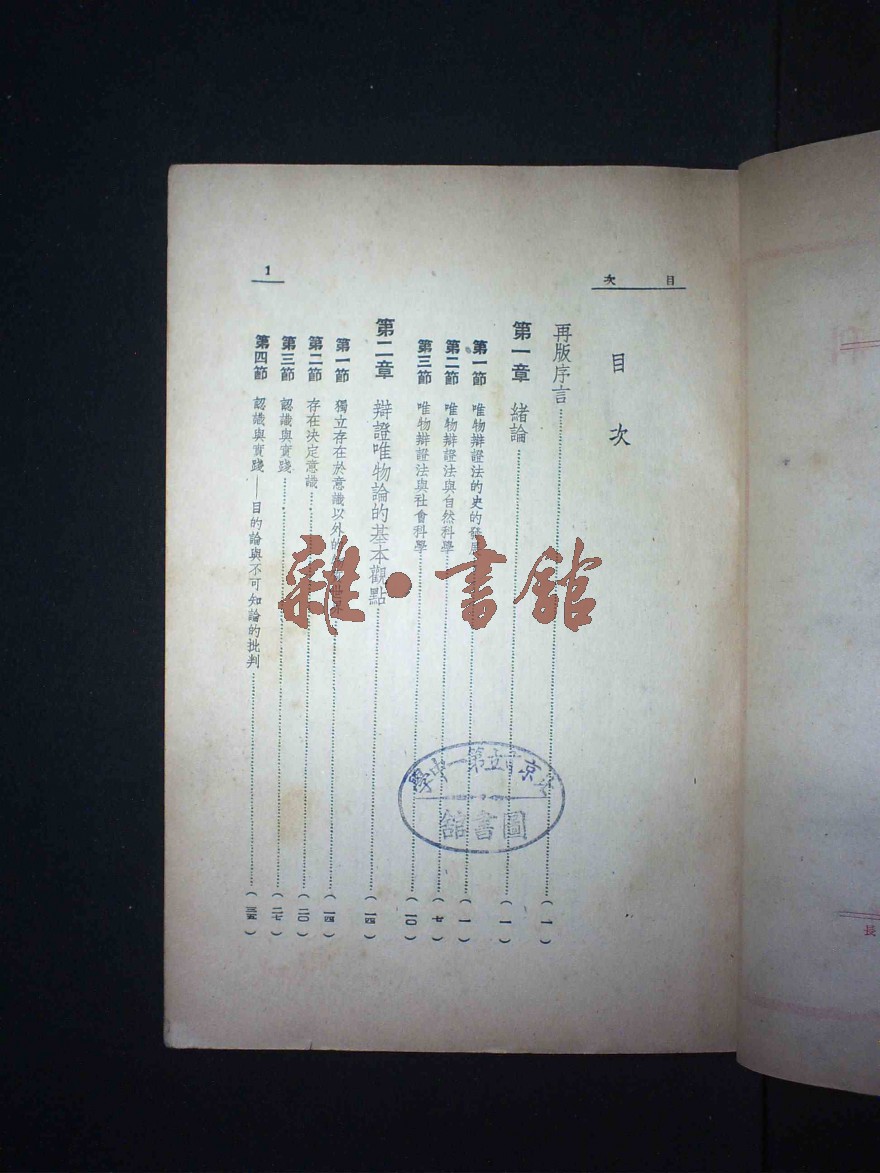 目次
1
目次
再版序言……(一)
第一章 緒論……(一)
第一節 唯物辯證法的史的發展……(一)
第二節 唯物辯證法與自然科學……(七)
第三節 唯物辯證法與社會科學……(一〇)
第二章 辯證唯物論的基本觀點……(一四)
第一節 獨立存在於意識以外的……(一四)
第二節 存在決定意識……(二〇)
第三節 認識與實踐……(二七)
第四節 認識與實踐——目的論與不可知論的批判……(三五)
雜·書館
京市立第一中學
圖書館
長